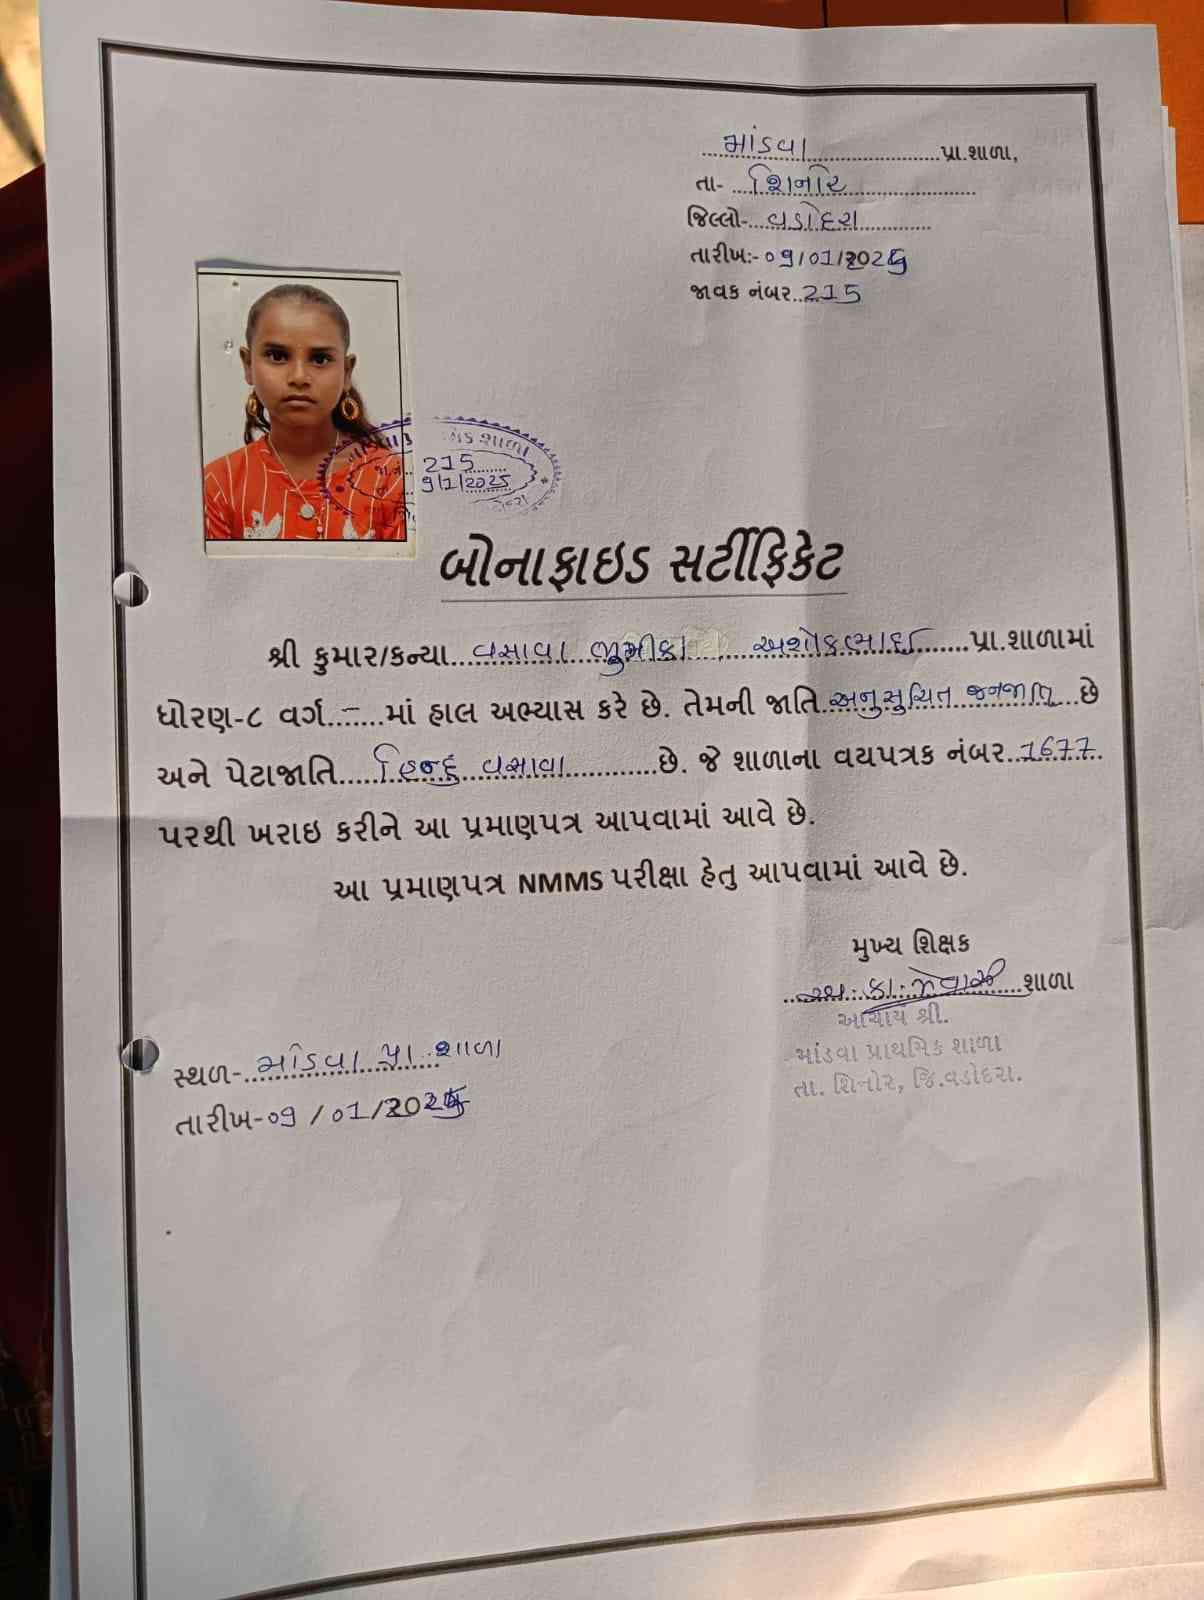 માંડવા પ્રા.શાળા,
તા- શિનોર
જિલ્લો- વડોદરા
તારીખ:- ૦9/01/2025
જાવક નંબર 215
શાળા
215
9/1/2025
બોનાફાઇડ સર્ટીફિકેટ
શ્રી કુમાર/કન્યા વસાવા ભુમીકા અશોકભાઈ પ્રા.શાળામાં
ધોરણ-૮ વર્ગ - માં હાલ અભ્યાસ કરે છે. તેમની જાતિ અનુસુચિત જનજાતિ છે
અને પેટાજાતિ હિન્દુ વસાવા છે. જે શાળાના વયપત્રક નંબર 1677
પરથી ખરાઇ કરીને આ પ્રમાણપત્ર આપવામાં આવે છે.
આ પ્રમાણપત્ર NMMS પરીક્ષા હેતુ આપવામાં આવે છે.
મુખ્ય શિક્ષક
શાળા
આચાર્ય શ્રી.
માંડવા પ્રાથમિક શાળા
તા. શિનોર, જિ.વડોદરા.
સ્થળ- માંડવા પ્રા. શાળા
તારીખ-૦9/01/2025